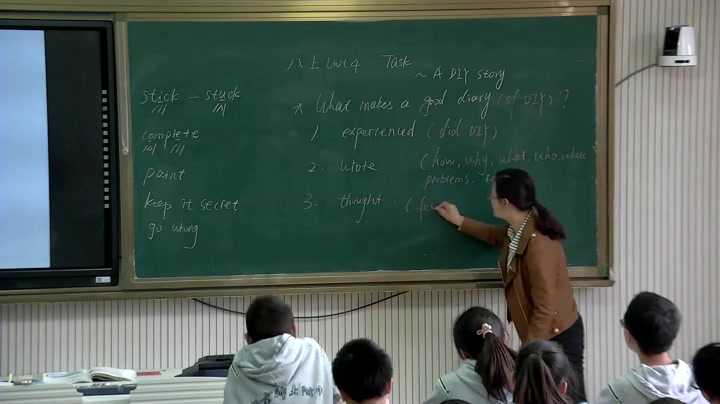 八上 Unit 4 Task
~ A DIY story
stick - stuck
/ɪ/ /ʌ/
complete
/ə/ /iː/
paint
keep it secret
go wrong
* What makes a good diary (of DIY)?
1. experienced (did DIY)
2. wrote (how, why, what, who, where
problems.
3. thought. (fee